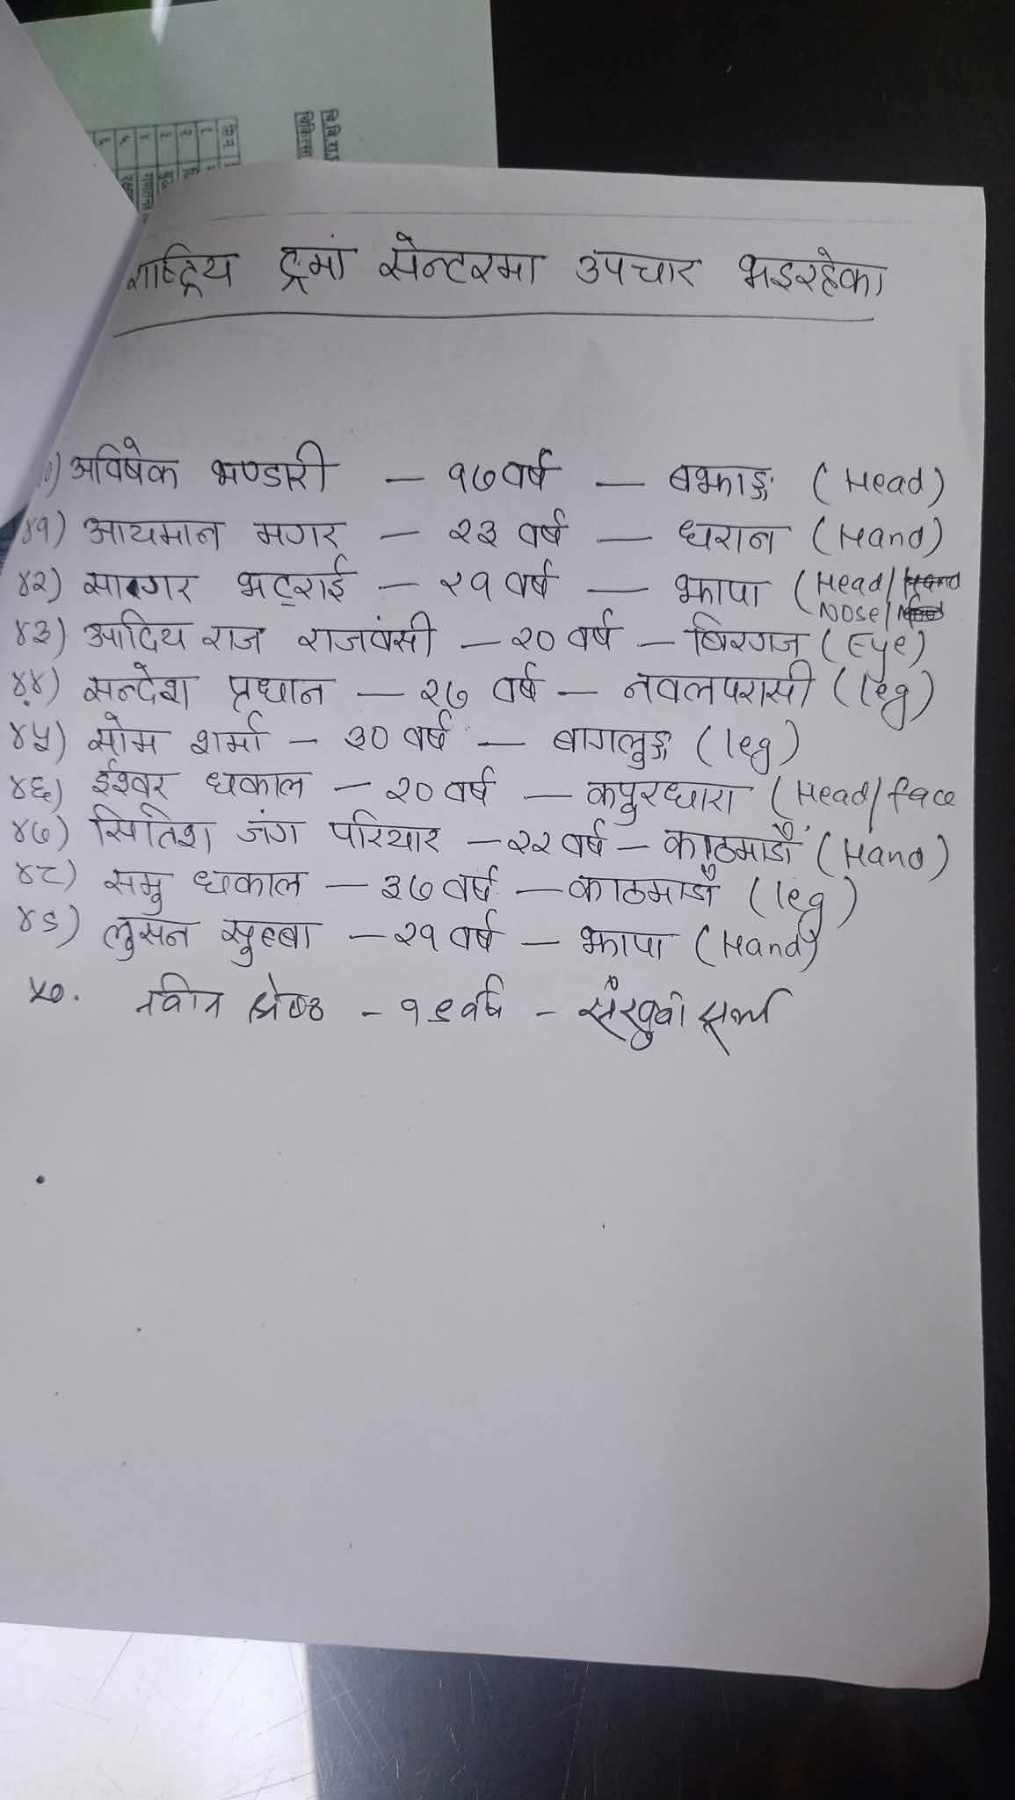 चि.वि.रा.प्र
चिकित्सा
राष्ट्रिय ट्रमां सेन्टरमा उपचार भइरहेका
०) अविषेक भण्डारी — १७ वर्ष — बझाङ्ग (Head)
४१) आयमान मगर — २३ वर्ष — धरान (Hand)
४२) सागर भट्राई — २१ वर्ष — झापा (Head/
Nose/
४३) आदिय राज राजवंसी — २० वर्ष — बिरगज (Eye)
४४) सन्देश प्रधान — २७ वर्ष — नवलपरासी (leg)
४५) सोम शर्मा — ३० वर्ष — बागलुङ्ग (leg)
४६) ईश्वर ढकाल — २० वर्ष — कपुरधारा (Head/face
४७) सितिश जंग परियार — २२ वर्ष — काठमाडौं (Hand)
४८) समु ढकाल — ३७ वर्ष — काठमाडौ (leg)
४९) लुसन सुब्बा — २१ वर्ष — झापा (Hand)
५०. नविन श्रेष्ठ - १९ वर्ष -